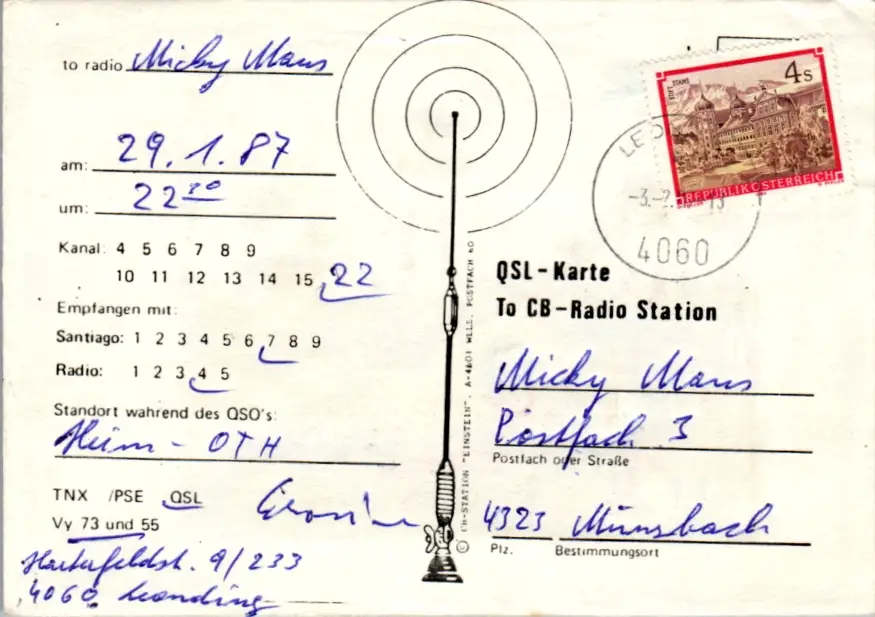 to radio Micky Maus
am: 29.1.87
um: 22 30
Kanal: 4 5 6 7 8 9
10 11 12 13 14 15 22
Empfangen mit:
Santiago: 1 2 3 4 5 6 7 8 9
Radio: 1 2 3 4 5
Standort wahrend des QSO's:
Heim - QTH
TNX /PSE QSL
Vy 73 und 55
9/233
4060 Leonding
© CB-STATION "EINSTEIN", A-4601 WELS, POSTFACH 60
STIFT STAMS
4s
REPUBLIK ÖSTERREICH
4060
QSL-Karte
To CB-Radio Station
Micky Maus
Postfach 3
Postfach oder Straße
4323 Münsbach
Plz. Bestimmungsort